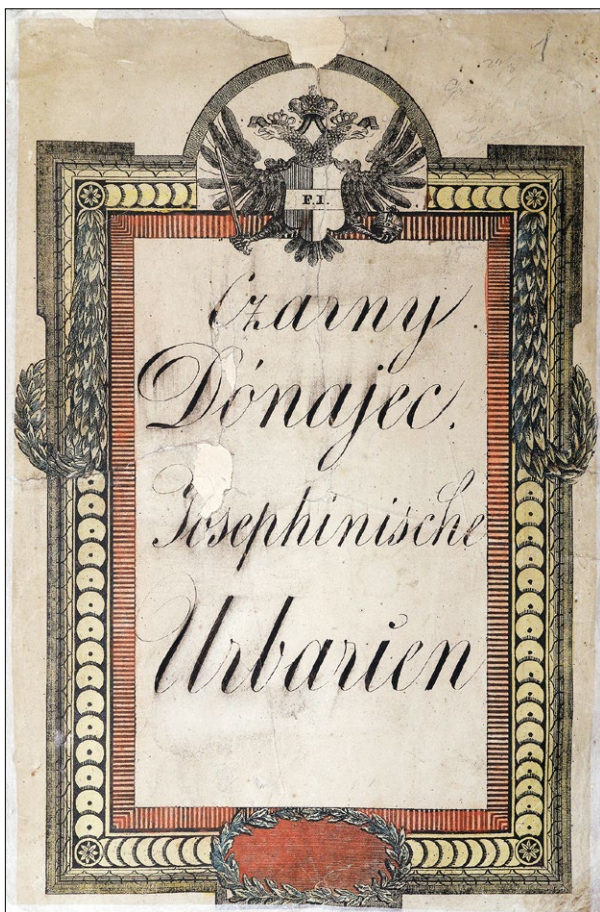 F.I.
Czarny
Dónajec.
Josephinische
Urbarien